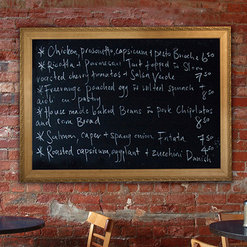 * Chicken, prosciutto, capsicum & pesto Brioche 6.50
* Ricotta & Parmesan Tart topped in Slow
roasted cherry tomatoes & Salsa Verde 7.50
* Freerange poached egg in wilted spinach
8.50
* House made baked Beans in pork Chipolatas
and Bread 8.50
* Salmon, caper & spring onion Frittata 7.50
* Roasted capsicum eggplant & zucchini Danish 4.50